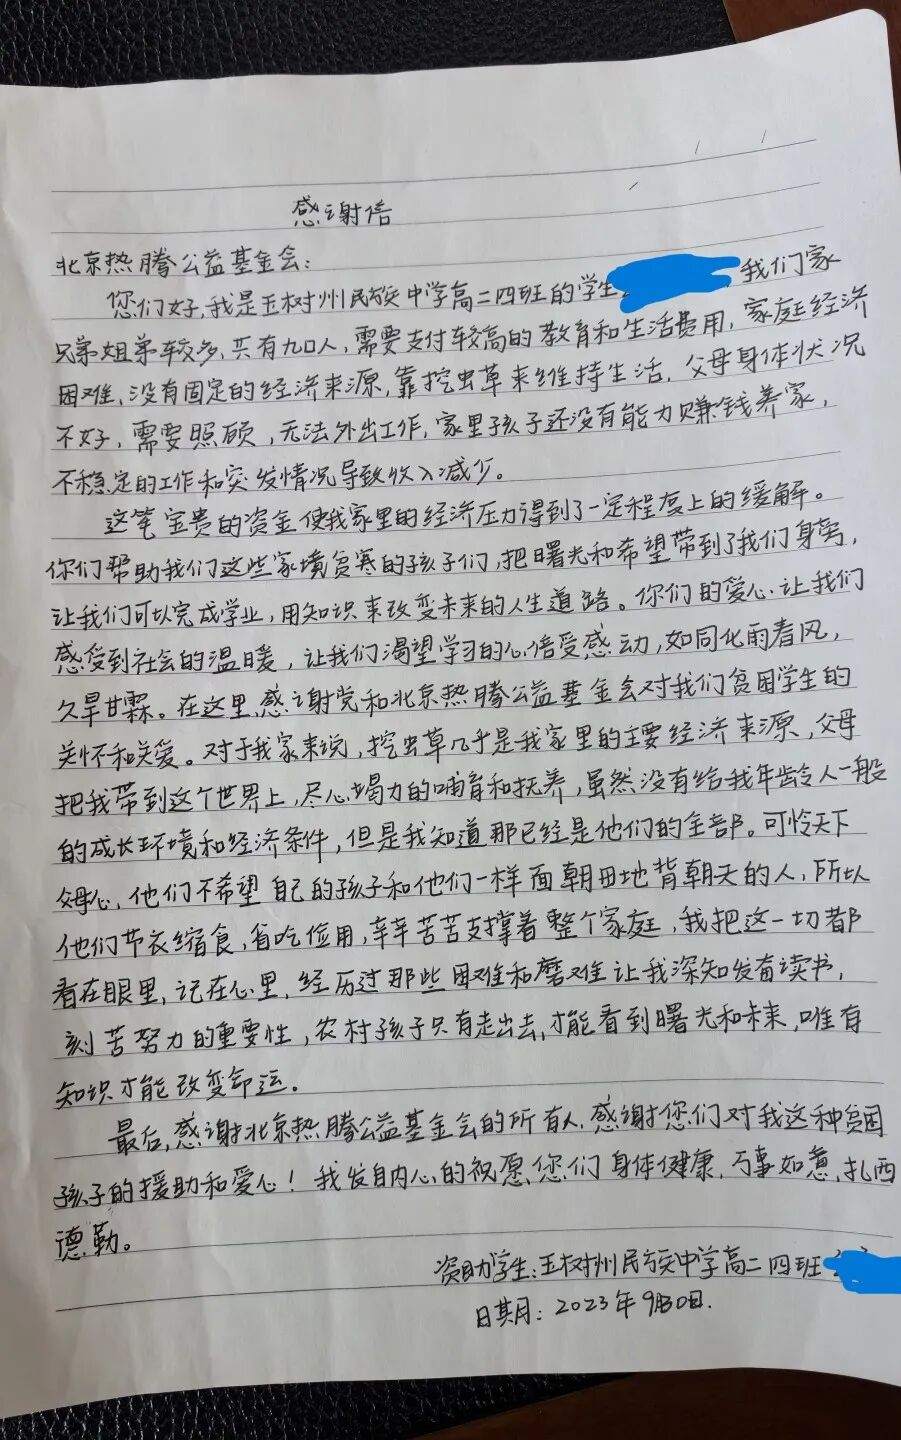 感谢信
北京热腾公益基金会：
您们好,我是玉树州民族中学高二四班的学生 我们家
兄弟姐弟较多,共有九口人,需要支付较高的教育和生活费用,家庭经济
困难,没有固定的经济来源,靠挖虫草来维持生活,父母身体状况
不好,需要照顾,无法外出工作,家里孩子还没有能力赚钱养家,
不稳定的工作和突发情况导致收入减少。
这笔宝贵的资金使我家里的经济压力得到了一定程度上的缓解。
你们帮助我们这些家境贫寒的孩子们,把曙光和希望带到了我们身旁,
让我们可以完成学业,用知识来改变未来的人生道路。你们的爱心让我们
感受到社会的温暖,让我们渴望学习的心倍受感动,如同化雨春风,
久旱甘霖。在这里感谢党和北京热腾公益基金会对我们贫困学生的
关怀和关爱。对于我家来说,挖虫草几乎是我家里的主要经济来源,父母
把我带到这个世界上,尽心竭力的哺育和抚养,虽然没有给我年龄人一般
的成长环境和经济条件,但是我知道那已经是他们的全部。可怜天下
父母心,他们不希望自己的孩子和他们一样面朝田地背朝天的人,所以
他们节衣缩食,省吃俭用,辛辛苦苦支撑着整个家庭,我把这一切都
看在眼里,记在心里,经历过那些困难和磨难让我深知发奋读书,
刻苦努力的重要性,农村孩子只有走出去,才能看到曙光和未来,唯有
知识才能改变命运。
最后,感谢北京热腾公益基金会的所有人,感谢您们对我这种贫困
孩子的援助和爱心!我发自内心的祝愿您们身体健康,万事如意,扎西
德勒。
资助学生:玉树州民族中学高二四班
日期:2023年9月 日.